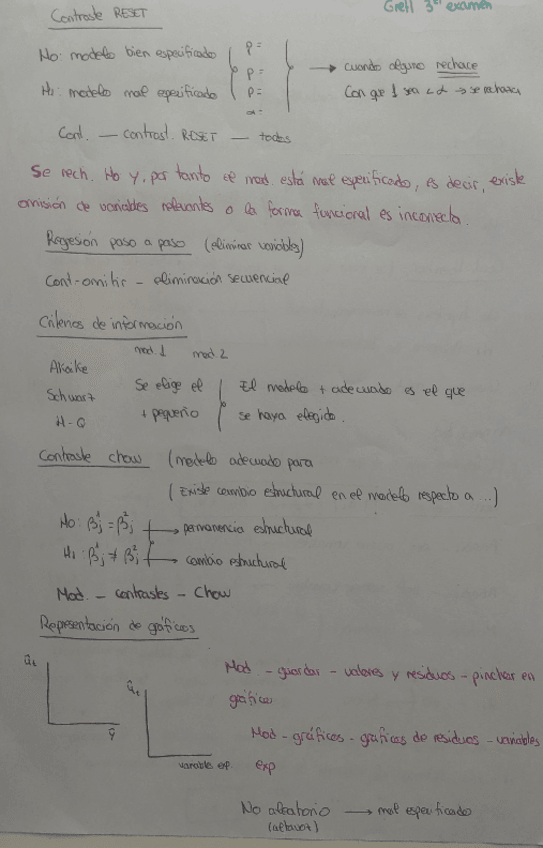 Gretl 3er examen
Contraste RESET
Ho: modelo bien especificado
H1: modelo mal especificado
p=
p=
p=
α=
→ cuando alguno rechace
Con que 1 sea < α → se rechaza
Cont. — contrast. RESET — todos
Se rech. Ho y, por tanto el mod. está mal especificado, es decir, existe
omisión de variables relevantes o la forma funcional es incorrecta.
Regresión paso a paso (eliminar variables)
Cont-omitir - eliminación secuencial
Criterios de información
mod. 1 mod 2
Akaike
Schwarz
H-Q
Se elige el
+ pequeño
El modelo + adecuado es el que
se haya elegido.
Contraste chow (modelo adecuado para
(Existe cambio estructural en el modelo respecto a ...)
Ho: β¹j = β²j → permanencia estructural
H1: β¹j ≠ β²j → cambio estructural
Mod. - contrastes - Chow
Representación de gráficos
ût
ŷ
ût
variable exp.
Mod - guardar - valores y residuos - pinchar en
gráfico
Mod - gráficos - gráficos de residuos - variables
exp
No aleatorio → mal especificado